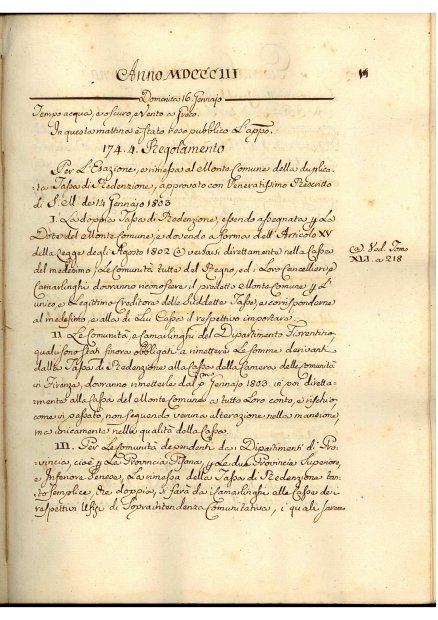 Anno MDCCCIII
Domenica 16. Gennajo
Tempo acqua, e oscuro, e Vento a
In questa mattina è stato reso pubblico L'app.º
174. 4. Regolamento
Per L'Esazione, e rimessa al Monte Comune della duplica-
ta Tassa di Redenzione, approvato con Veneratissimo Rescritto
di S. M. de 14 Gennajo 1803
I. La doppia Tassa di Redenzione, essendo assegnata p La
Dote del Monte Comune, e dovendo a forma dell'Articolo XV
della Legge degli Agosto 1802 @ versarsi direttamente nella Cassa
@ Ved. Tomo
XLI. a 218
del medesimo; Le Comunità tutte del Regno, ed i Loro Cancellieri, e
Camarlinghi dovranno riconoscere il predetto Monte Comune p L'
unico, e Legittimo Creditore delle Suddette Tasse, e corrisponderne
al medesimo, e alla di Lui Cassa il respettivo importare.
II. Le Comunità, e Camarlinghi del Dipartimento Fiorentino
quali sono stati finora obbligati a rimettere Le somme derivanti
dalla Tassa di Redenzione alla Cassa della Camera delle Comunità
in Firenze, dovranno rimetterle dal p.mo Gennajo 1803. in poi diretta-
mente alla Cassa del Monte Comune a tutto Loro conto, e rischio
come in passato non seguendo veruna alterazione nella mansione,
ma unicamente nella qualità della Cassa.
III. Per Le Comunità dependenti dai Dipartimenti di Pro-
vincia, cioè p La Provincia Pisana, p Le due Provincie Superiore,
e Inferiore Senese, La rimessa della Tassa di Redenzione tan-
to semplice, che doppia, si farà da i Camarlinghi alle Casse dei
respettivi Ufizj di Soprintendenza Comunitativa, i quali